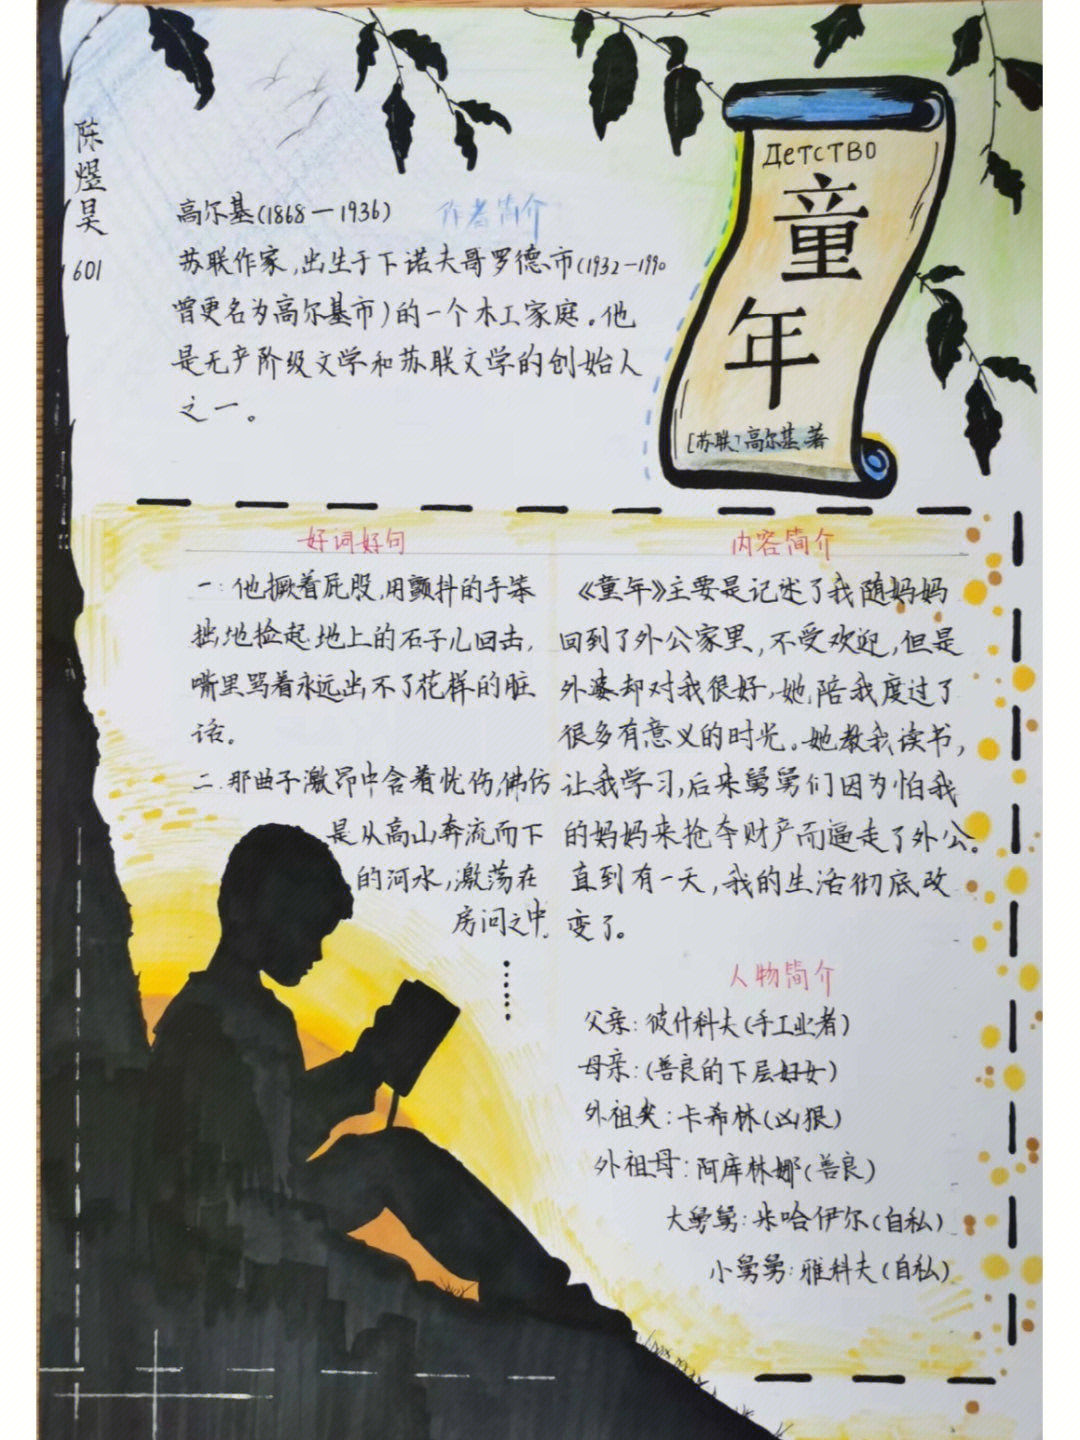 陈煜昊
601
Детство
童年
[苏联]高尔基 著
作者简介
高尔基(1868—1936)
苏联作家,出生于下诺夫哥罗德市(1932—1990
曾更名为高尔基市)的一个木工家庭。他
是无产阶级文学和苏联文学的创始人
之一。
好词好句
一:他撅着屁股,用颤抖的手笨
拙地捡起地上的石子儿回击,
嘴里骂着永远出不了花样的脏
话。
二.那曲子激昂中含着忧伤,佛仿
是从高山奔流而下
的河水,激荡在
房间之中.
内容简介
《童年》主要是记述了我随妈妈
回到了外公家里,不受欢迎,但是
外婆却对我很好,她陪我度过了
很多有意义的时光。她教我读书,
让我学习,后来舅舅们因为怕我
的妈妈来抢夺财产而逼走了外公。
直到有一天,我的生活彻底改
变了。
人物简介
父亲:彼什科夫(手工业者)
母亲:(善良的下层妇女)
外祖父:卡希林(凶狠)
外祖母:阿库林娜(善良)
大舅舅:米哈伊尔(自私)
小舅舅:雅科夫(自私)